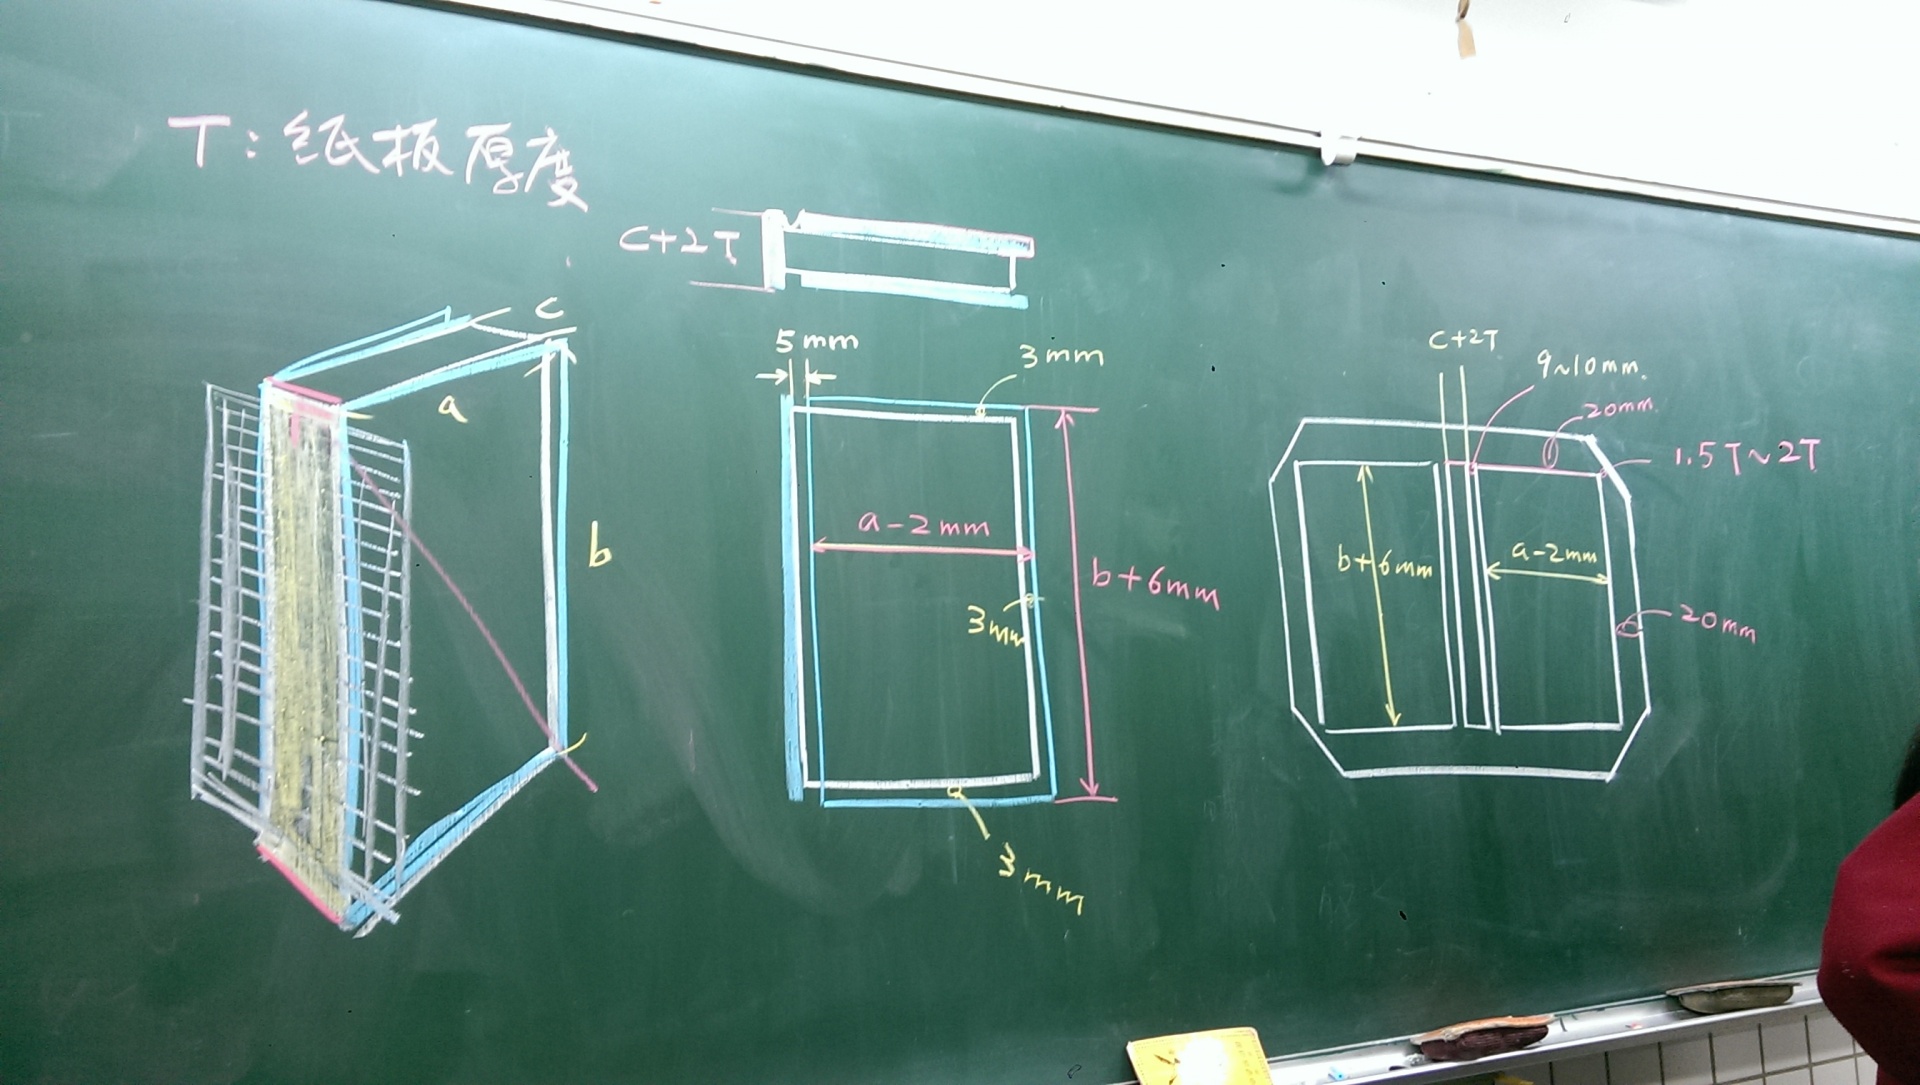 T：纸板厚度
C+2T
C
a
b
5mm
3mm
a-2mm
b+6mm
3mm
3mm
C+2T
9~10mm.
20mm.
1.5T~2T
b+6mm
a-2mm
20mm